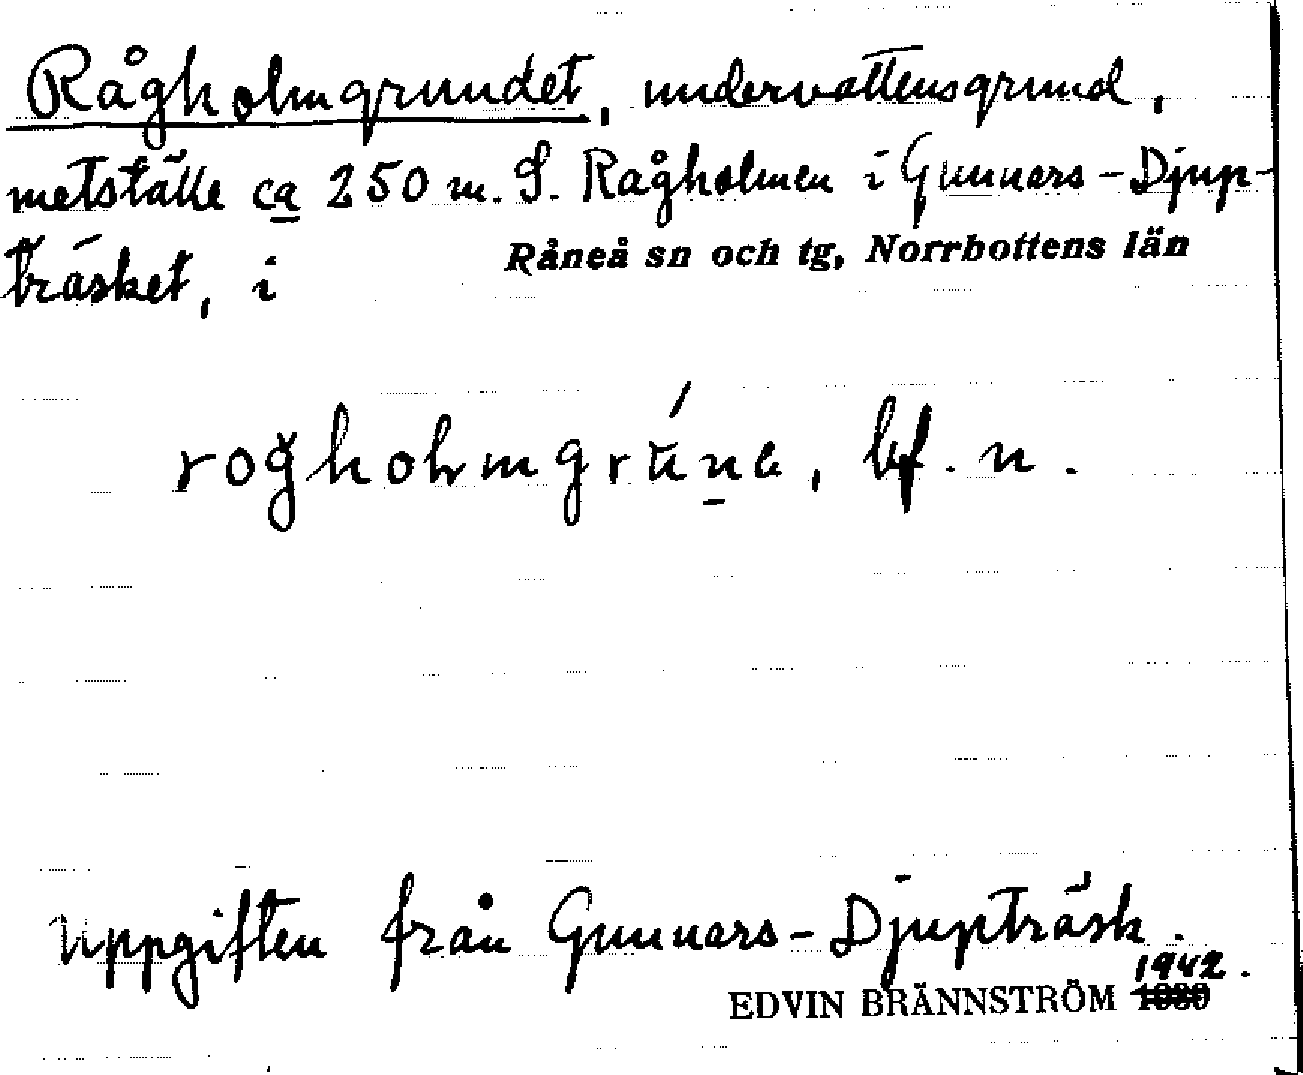 Rågholmgrundet, undervattensgrund,
metställe ca 250 m. S. Rågholmen i Gunnars-Djup-
träsket, i Råneå sn och tg, Norrbottens län
bf. n.
Uppgiften från Gunnars-Djupträsk.
1942.
EDVIN BRÄNNSTRÖM 1930